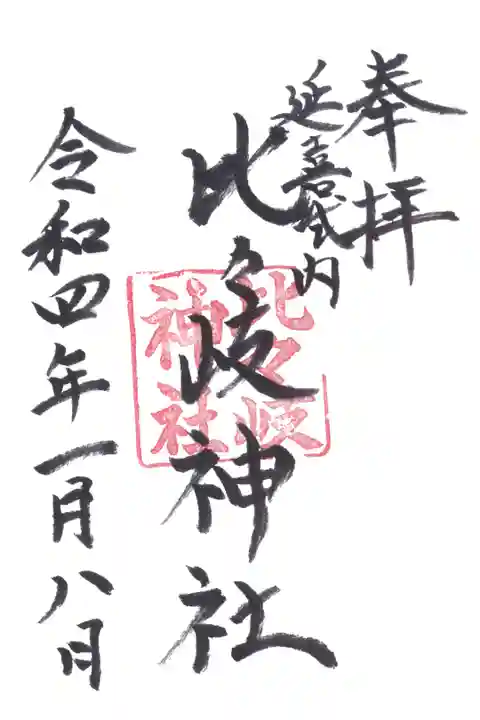 奉拝
延喜式内
比々岐神社
比々岐
神社
令和四年一月八日